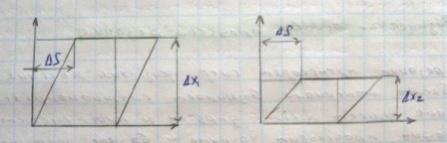 ΔS
ΔX₁
ΔS
ΔX₂